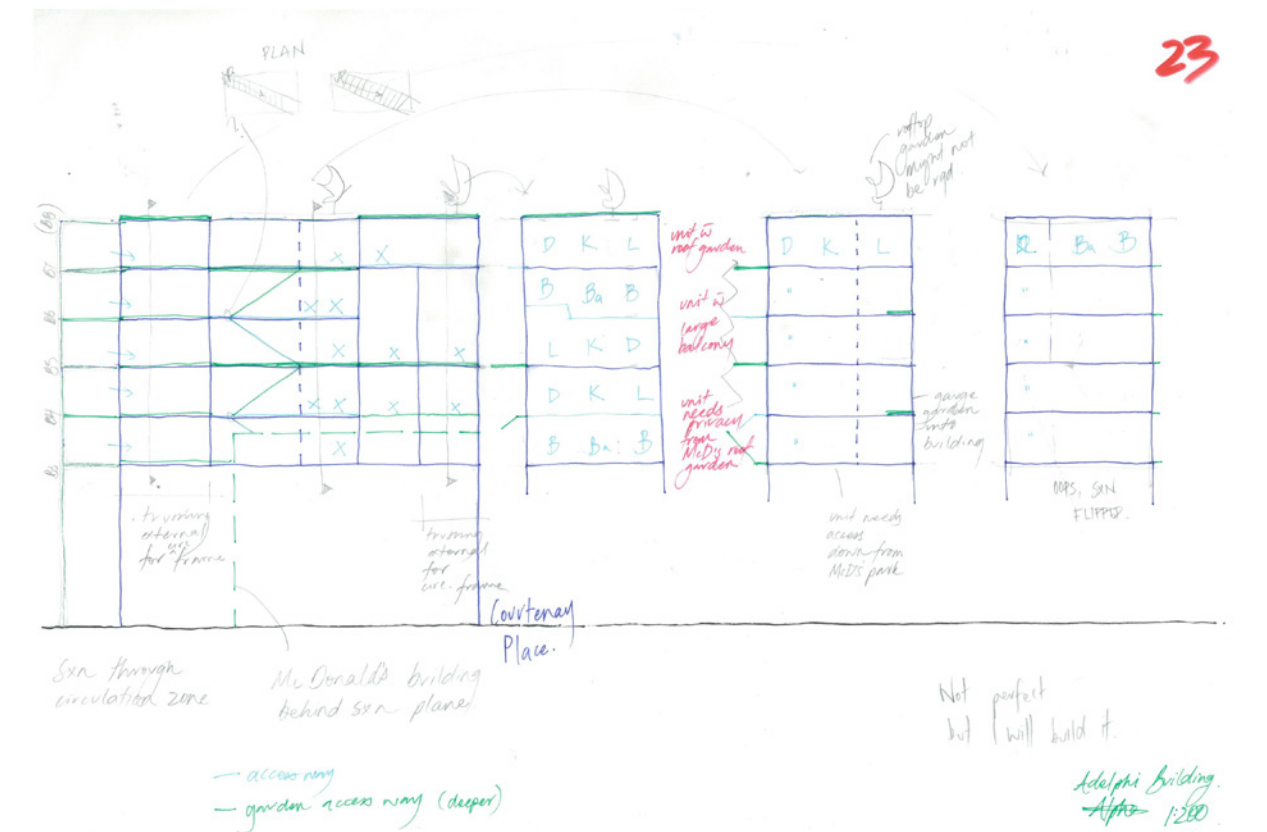 23
PLAN
rooftop
garden
might not
be rqd
(B8)
B7
B6
B5
B4
B3
D K L
B Ba B
L K D
D K L
B Ba B
unit w̄
roof garden
unit w̄
large
balcony
unit
needs
privacy
from
McD's roof
garden
D K L
Ba B
gauge
garden
into
building
OOPS, SXN
FLIPPED.
unit needs
access
down from
McD's park
trimming
external
for circ
frame
trimming
external
for
circ. frame
Courtenay
Place.
Sxn through
circulation zone
McDonald's building
behind sxn plane
Not perfect
but I will build it.
— access way
— garden access way (deeper)
Adelphi Building.
1:200